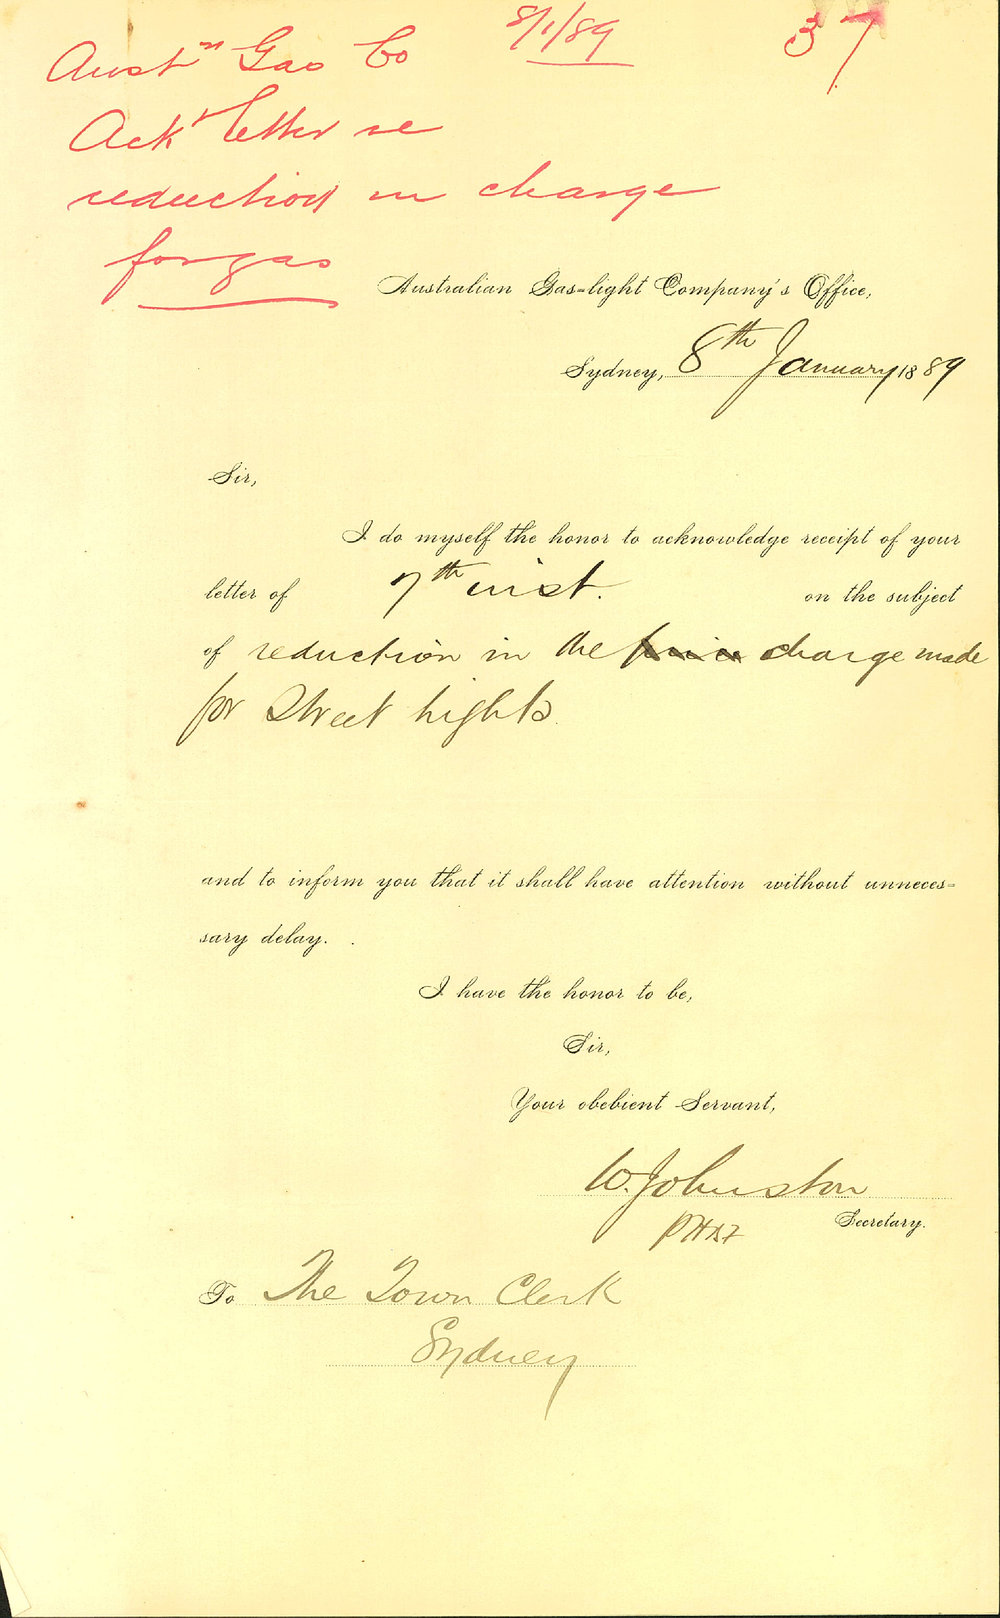 Austn Gas Co 8/1/89 37
Ackt letter re
reduction in charge
for gas
Australian Gas-light Company's Office,
Sydney, 8th January 1889
Sir,
I do myself the honor to acknowledge receipt of your
letter of 7th inst. on the subject
of reduction in the price charge made
for Street lights.
and to inform you that it shall have attention without unneces-
sary delay.
I have the honor to be,
Sir,
Your obebient Servant,
W. Johnston
Secretary.
To The Town Clerk
Sydney